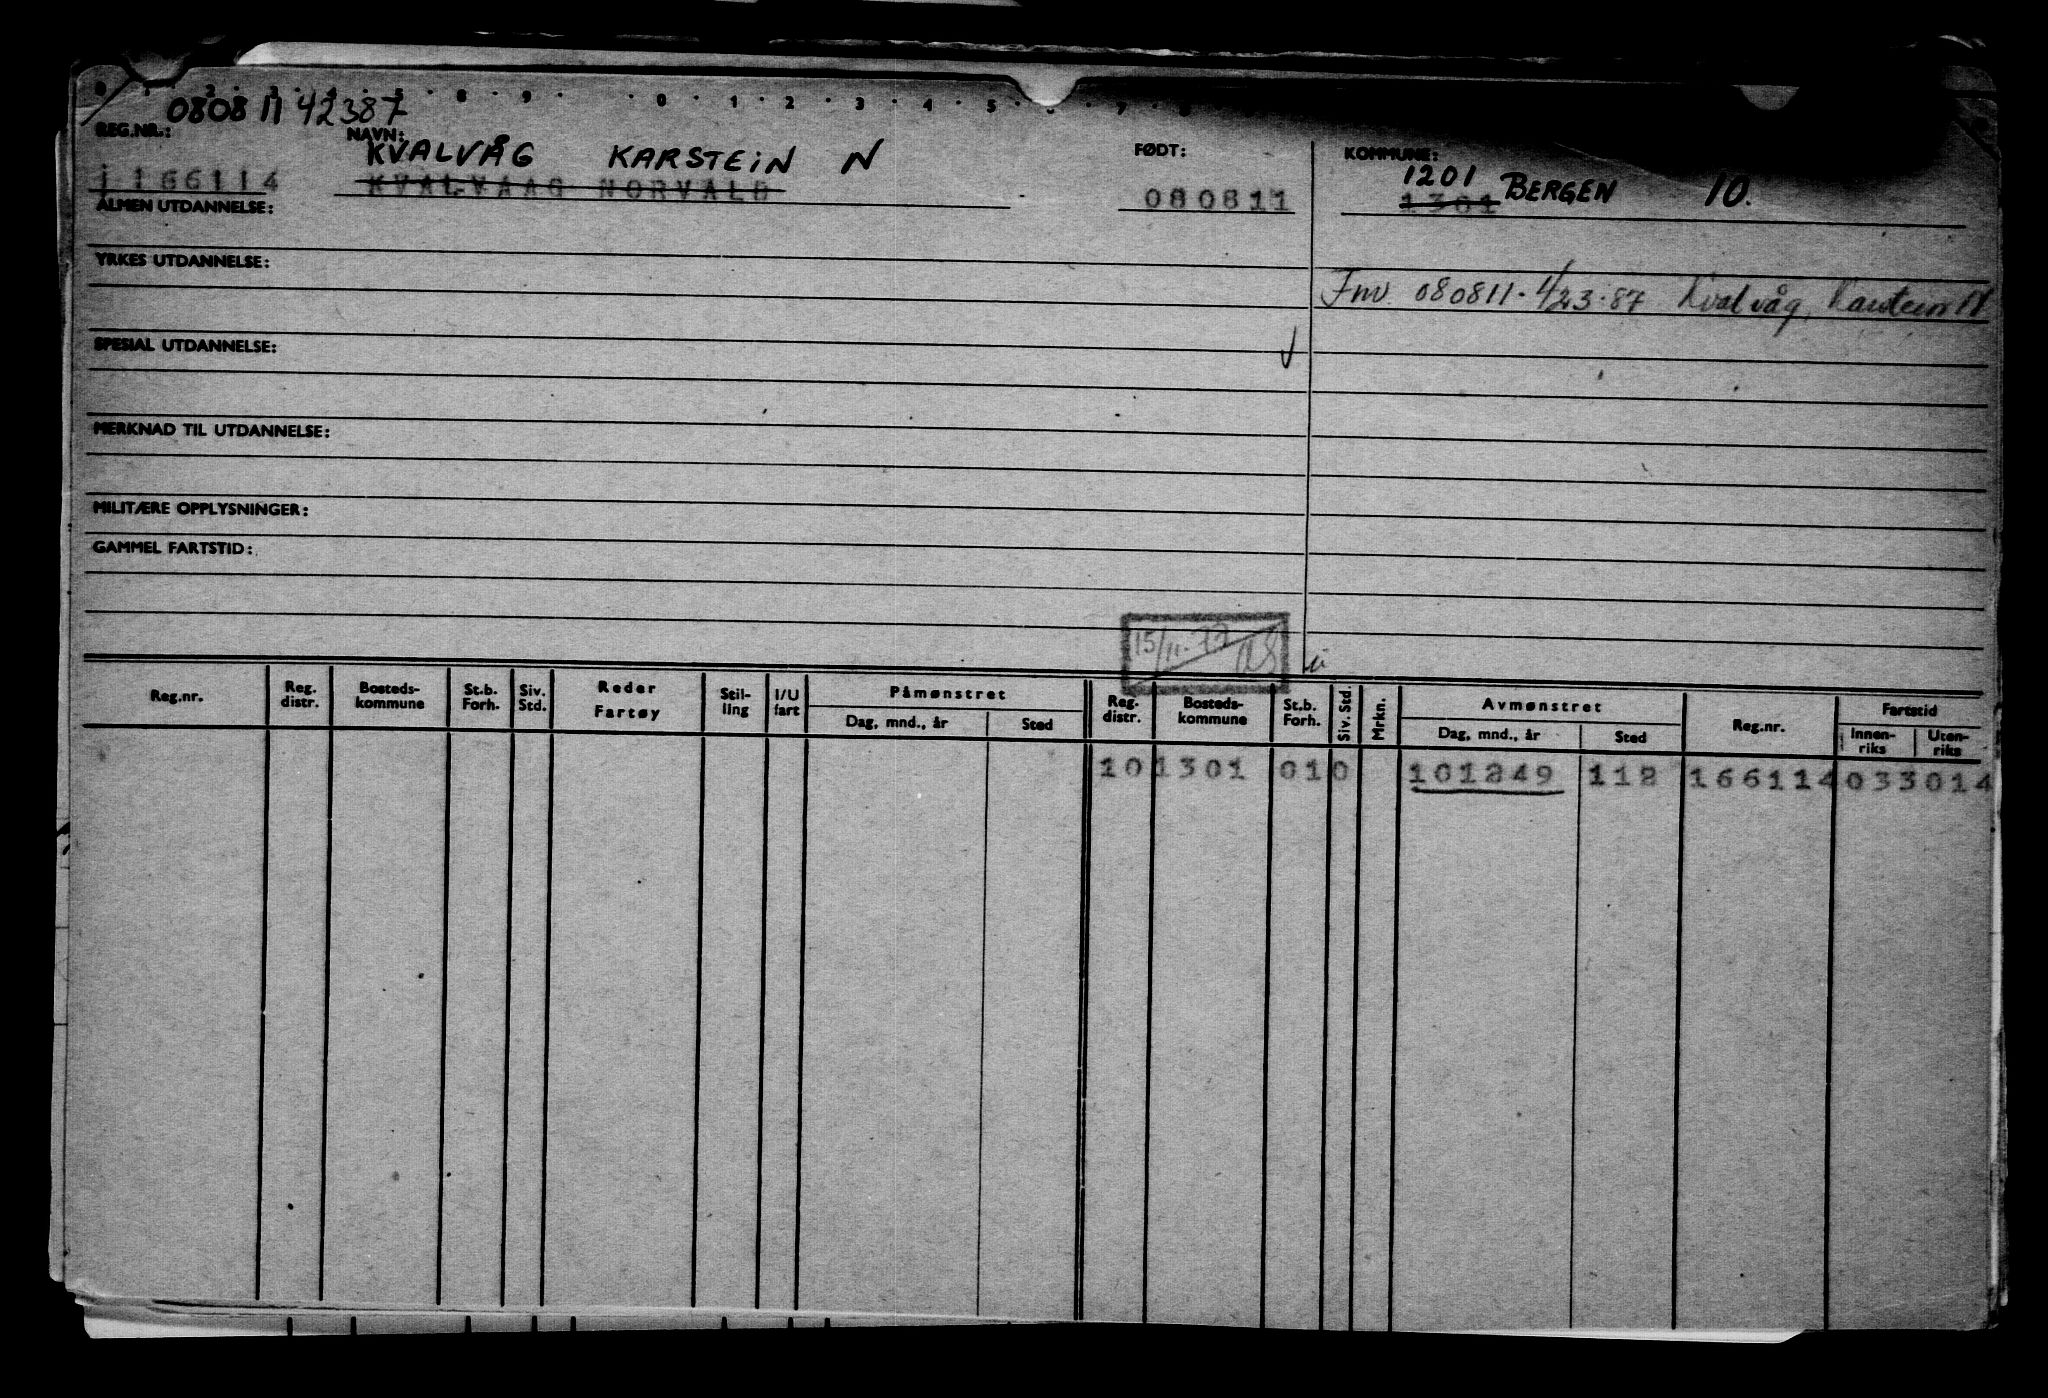 080811 42387
REG.NR.: NAVN: FØDT: KOMMUNE:
KVALVÅG KARSTEIN N
1201
1166114 KVALVAAG NORVALD 080811 1301 BERGEN 10.
ALMEN UTDANNELSE:
YRKES UTDANNELSE:
Fnv. 080811. 423.87 Kvalvåg, Karstein N
SPESIAL UTDANNELSE:
MERKNAD TIL UTDANNELSE:
MILITÆRE OPPLYSNINGER:
GAMMEL FARTSTID:
15/11.77
Reg.nr. Reg. distr. Bosteds-kommune St.b. Forh. Siv. Std. Reder Fartøy Stil-ling I/U fart Påmønstret Dag, mnd., år Sted Reg. distr. Bosteds-kommune St.b. Forh. Siv. Std. Mrkn. Avmønstret Dag, mnd., år Sted Reg.nr. Fartstid Innen-riks Uten-riks
10 1301 01 0 101249 112 166114 033 014